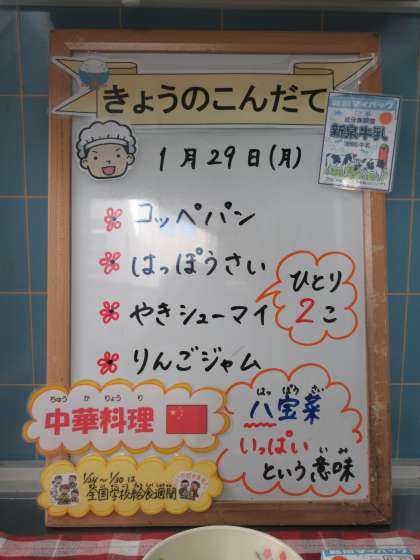 きょうのこんだて
1月29日(月)
コッペパン
はっぽうさい
やきシューマイ
ひとり
2こ
りんごジャム
ちゅうかりょうり
中華料理
はっぽうさい
八宝菜
いっぱい
いみ
という意味
1/24~1/30は
全国学校給食週間
新泉牛乳